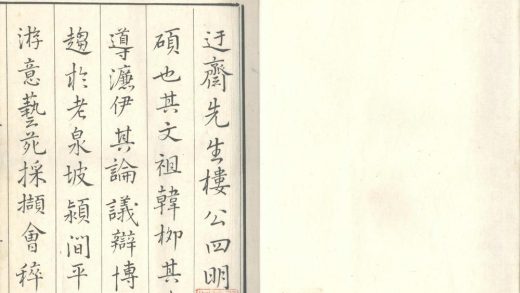 迂齋先生樓公四明
碩也其文祖韓柳其
導濂伊其論議辯博
趨於老泉坡潁間平
游意藝苑採擷會稡